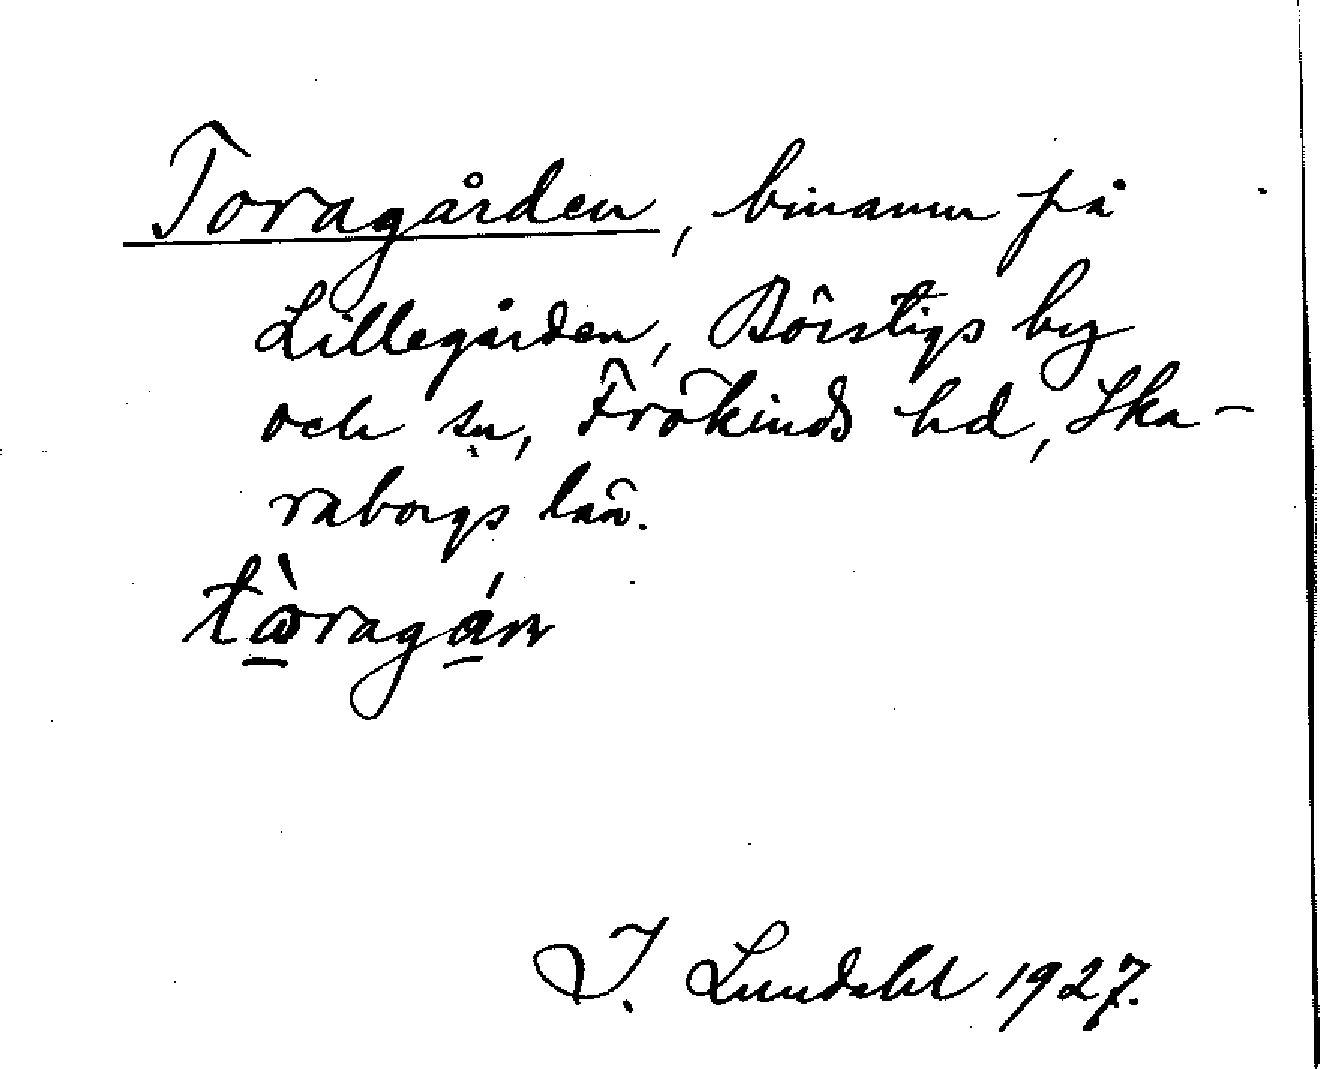 Toragården, binamn på
Lillegården, Börstigs by
och sn, Frökinds hd, Ska-
raborgs län.
tàragán
I. Lundahl 1927.